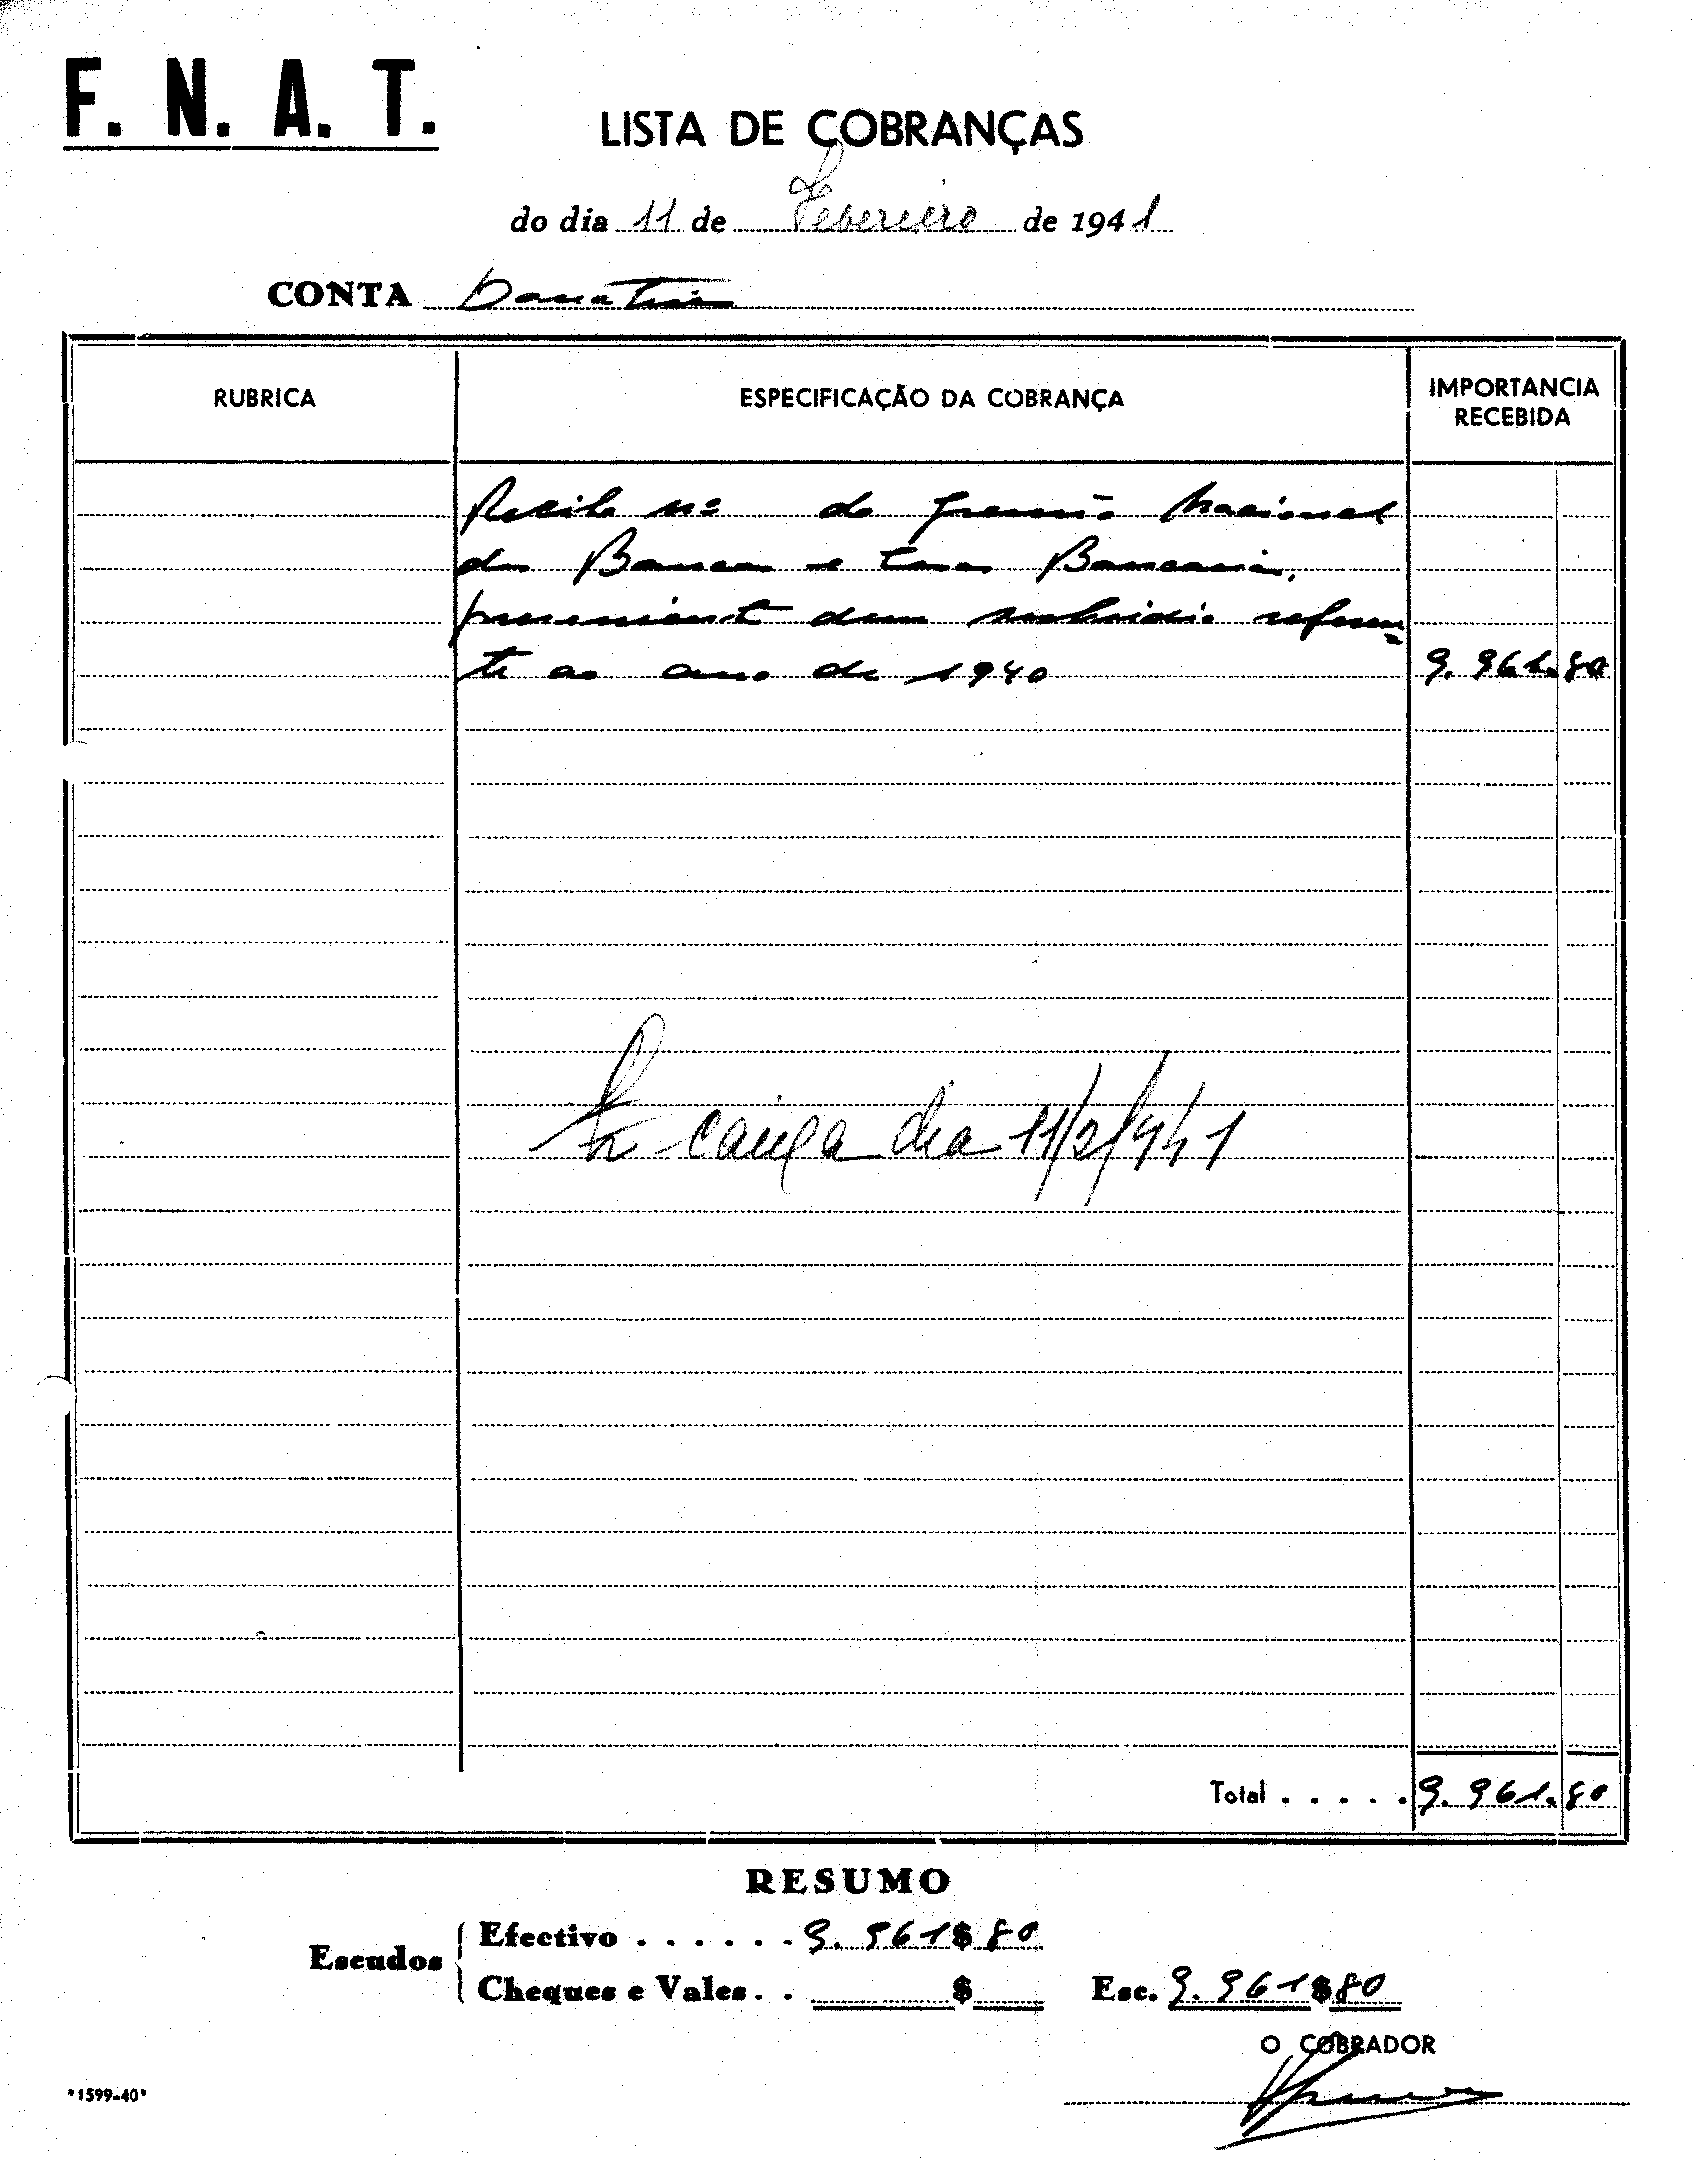 F. N. A. T.
LISTA DE COBRANÇAS
do dia 11 de Fevereiro de 1941
CONTA Donativos
RUBRICA
ESPECIFICAÇÃO DA COBRANÇA
IMPORTANCIA
RECEBIDA
Recibo nº do Gremio Nacional
dos Bancos e Casas Bancarias,
proveniente dum subsidio referen-
te ao ano de 1940 9.961.80
caixa dia 11/2/941
Total . . . . . 9.961.80
RESUMO
Escudos
Efectivo . . . . . . 9.961$80
Cheques e Vales. . $
Esc. 9.961$80
O COBRADOR
"1599-40"